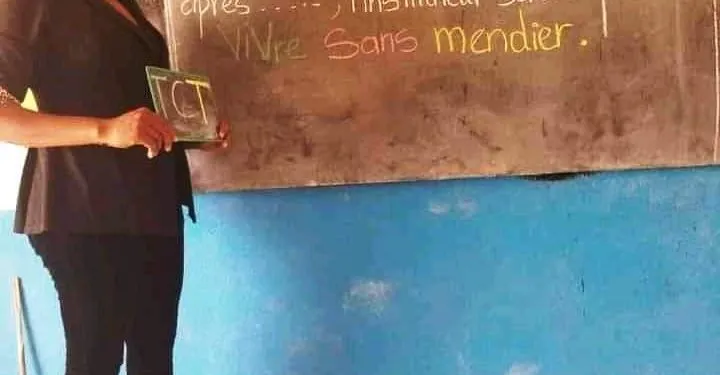 après ....., l'instituteur
ViVre Sans mendier.
CT